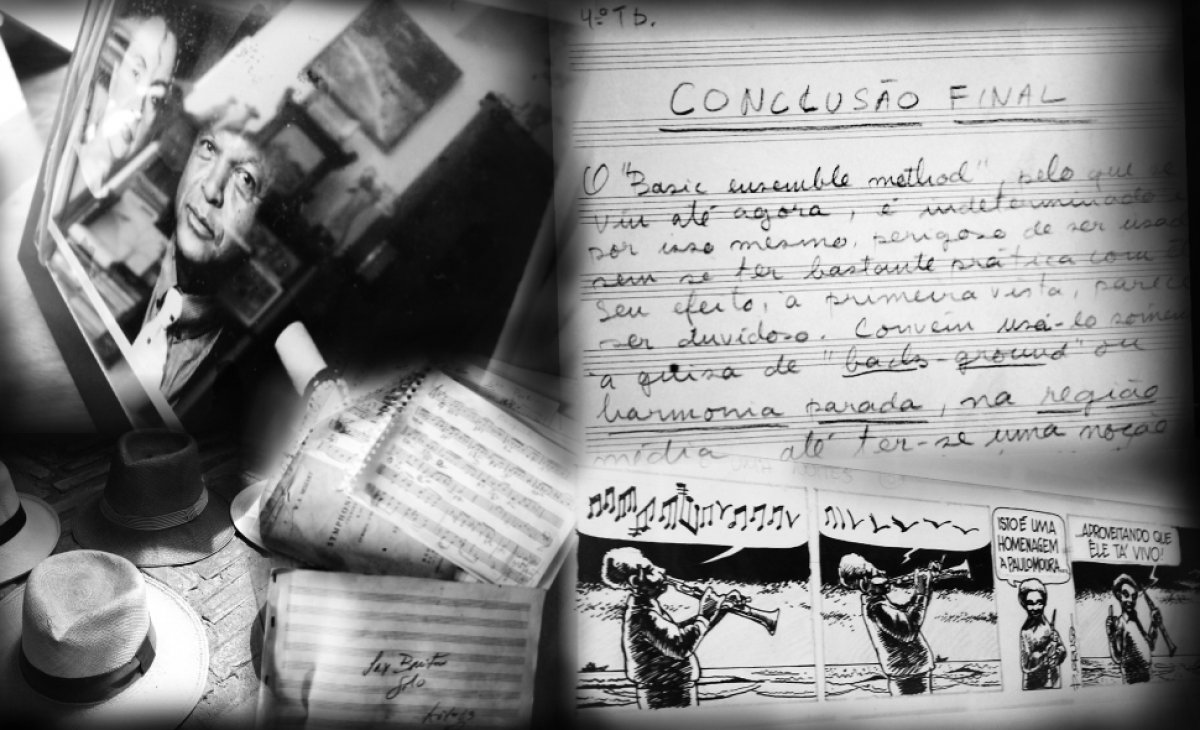 4º Tb.
CONCLUSÃO FINAL
O "Basic ensemble method", pelo que se
viu até agora, é indeterminado e
por isso mesmo, perigoso de ser usad
sem se ter bastante prática com
Seu efeito, à primeira vista, parec
ser duvidoso. Convém usá-lo somen
à guisa de "back-ground" ou
harmonia parada, na região
média até ter-se uma noção
ISTO É UMA
HOMENAGEM
A PAULO MOURA...
...APROVEITANDO QUE
ELE TA' VIVO!
SYMPHON
Solo